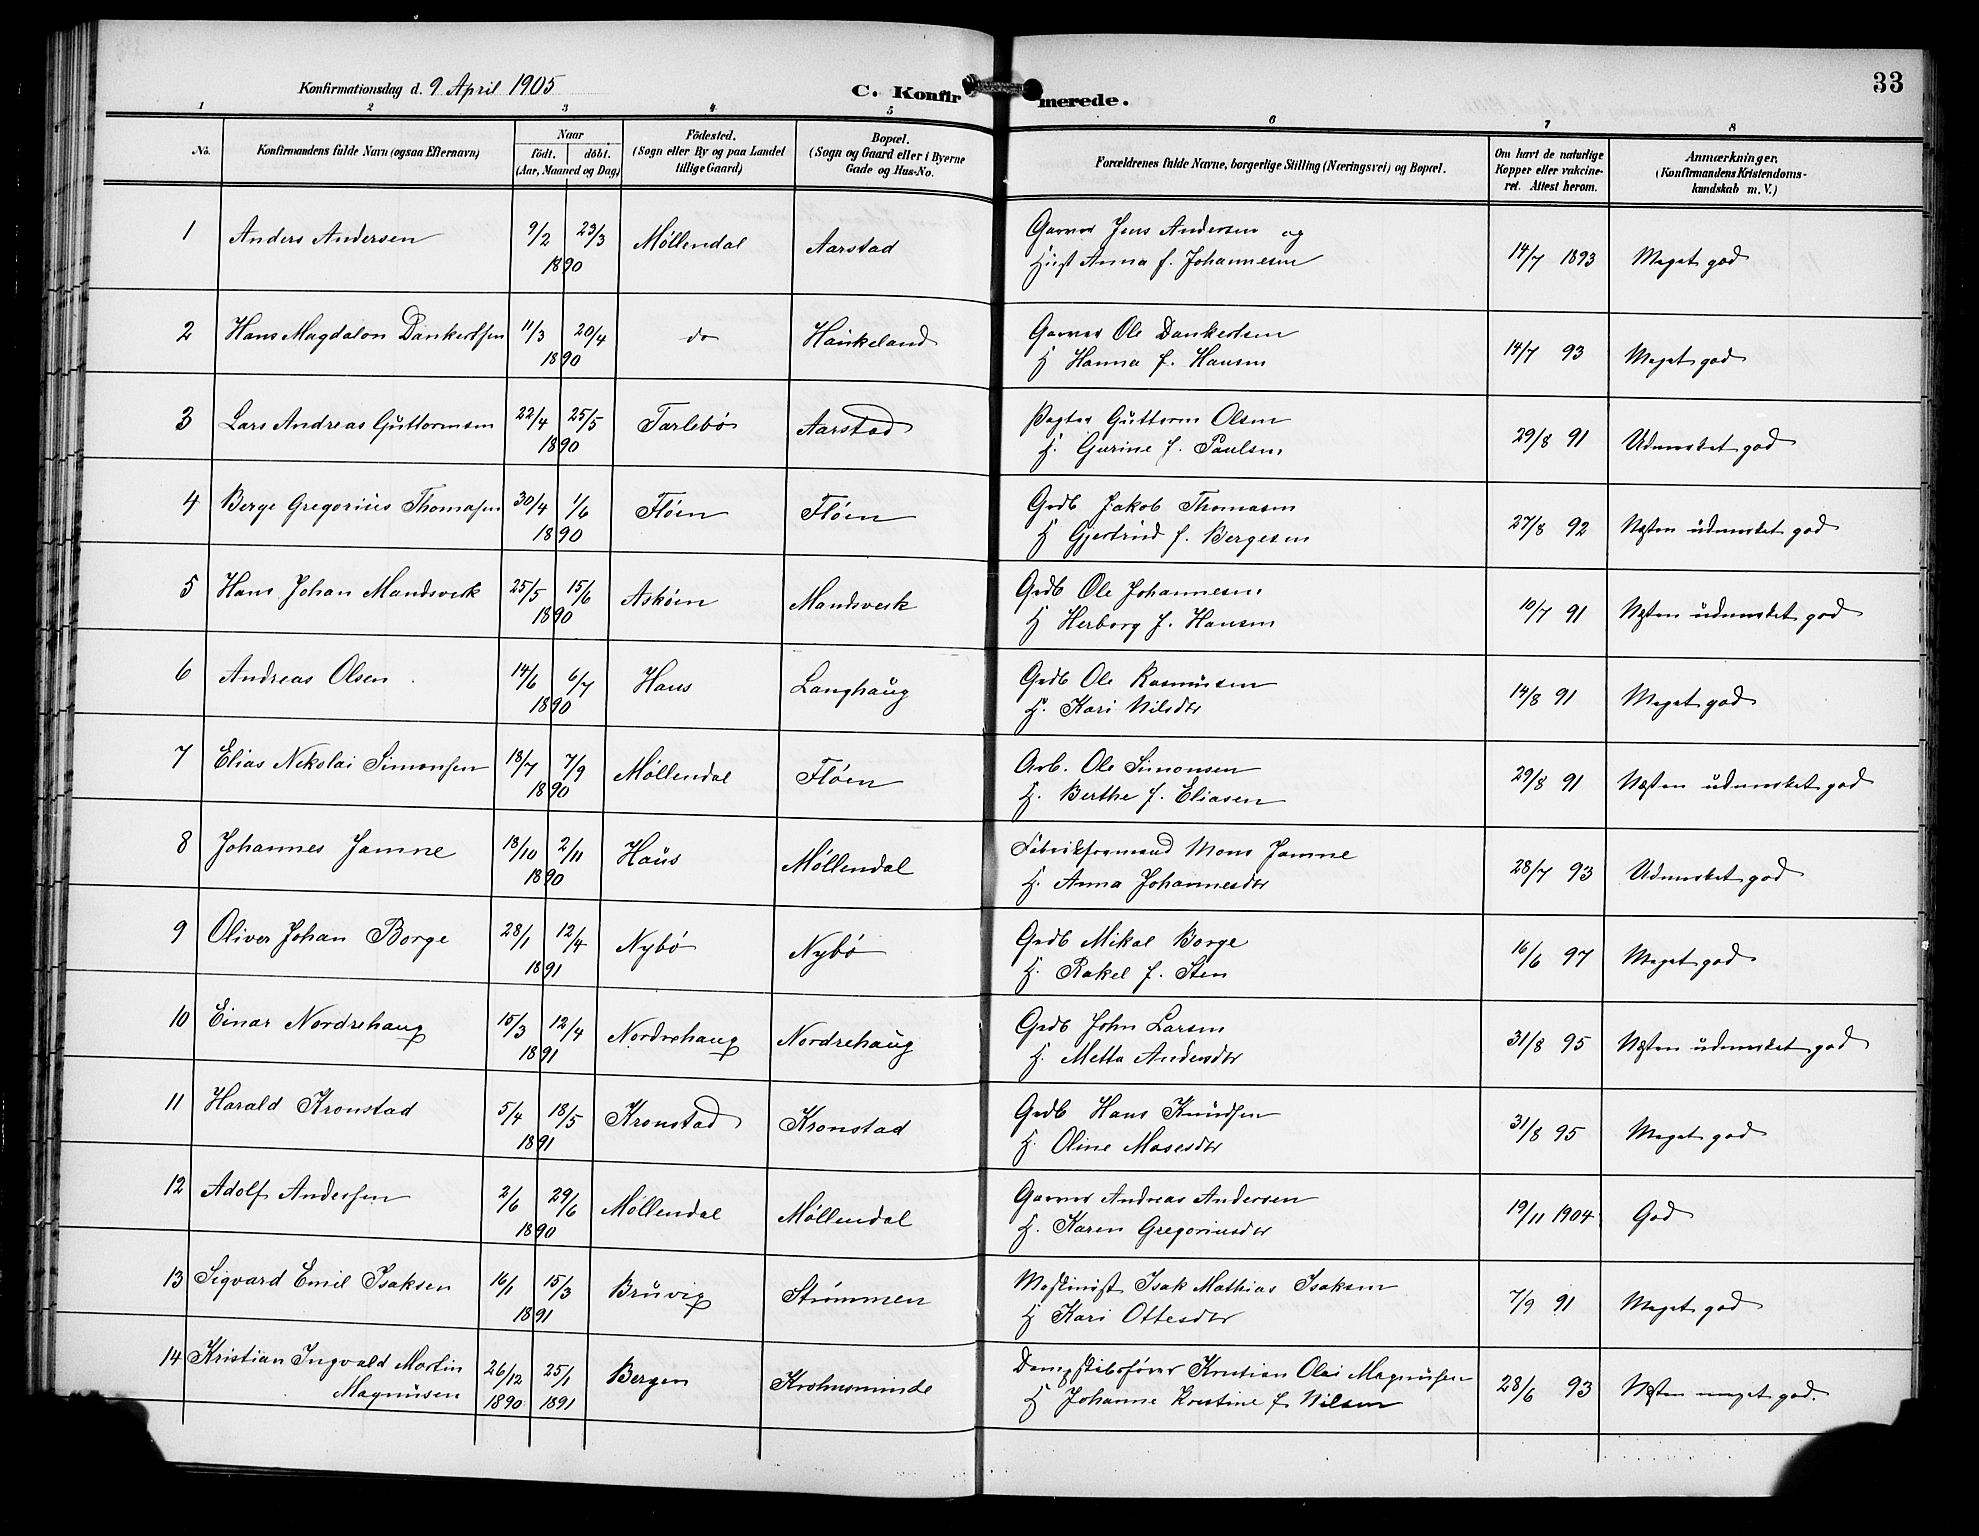 33
Konfirmationsdag d. 9 April 1905
C. Konfirmerede.
1 2 3 4 5 6 7 8
No.
Konfirmandens fulde Navn (ogsaa Efternavn)
Naar
födt. döbt.
(Aar, Maaned og Dag)
Födested.
(Sogn eller By og paa Landet
tillige Gaard)
Bopæl.
(Sogn og Gaard eller i Byerne
Gade og Hus-No.
Forældrenes fulde Navne, borgerlige Stilling (Næringsvei) og Bopæl.
Om havt de naturlige
Kopper eller vakcine-
ret. Attest herom.
Anmærkninger.
(Konfirmandens Kristendoms-
kundskab m. V.)
1 Anders Andersen 9/2 23/3 Møllendal Aarstad Garver Jens Andersen og
1890 Hust Anna f. Johannesen 14/7 1893 Meget god
2 Hans Magdalon Dankertsen 11/3 20/4 do Haukeland Garver Ole Dankertsen
1890 H Hanna f. Hansen 14/7 93 Meget god
3 Lars Andreas Guttormsen 22/4 25/5 Tarlebø Aarstad Pagter Guttorm Olsen
1890 H. Gurine f. Paulsen 29/8 91 Udmerket god
4 Berge Gregorius Thomasen 30/4 1/6 Fløen Fløen Grdb Jakob Thomasen
1890 H Gjertrud f. Bergesen 27/8 92 Næsten udmerket god
5 Hans Johan Mandsverk 25/5 15/6 Askøen Mandsverk Grdb Ole Johannesen
1890 H Herborg f. Hansen 10/7 91 Næsten udmerket god
6 Andreas Olsen 14/6 6/7 Haus Langhaug Grdb Ole Rasmusen
1890 H. Kari Nilsdtr 14/8 91 Meget god
7 Elias Nikolai Simonsen 18/7 7/9 Møllendal Fløen Arb. Ole Simonsen
1890 H. Berthe f. Eliasen 29/8 91 Næsten udmerket god
8 Johannes Jamne 18/10 2/11 Haus Møllendal Fabrikformand Mons Jamne
1890 H. Anna Johannesdtr 28/7 93 Udmerket god
9 Oliver Johan Borge 28/1 12/4 Nybø Nybø Grdb Mikal Borge
1891 H. Rakel f. Sten 16/6 97 Meget god
10 Einar Nordrehaug 15/3 12/4 Nordrehaug Nordrehaug Grdb John Larsen
1891 H. Metta Andersdtr 31/8 95 Næsten udmerket god
11 Harald Kronstad 5/4 18/5 Kronstad Kronstad Grdb Hans Knudsen
1891 H. Oline Mosesdtr 31/8 95 Meget god
12 Adolf Andersen 2/6 29/6 Møllendal Møllendal Garver Andreas Andersen
1890 H. Karen Gregoriusdtr 19/11 1904 God
13 Sigvard Emil Isaksen 16/1 15/3 Bruvig Strømmen Maskinist Isak Mathias Isaksen
1891 H Kari Ottesdtr 7/9 91 Meget god
14 Kristian Ingvald Martin 26/12 25/1 Bergen Krohnsminde Dampskibsfører Kristian Olai Magnusen
Magnusen 1890 1891 H Johanne Kristine f Nilsen 28/6 93 Næsten meget god.